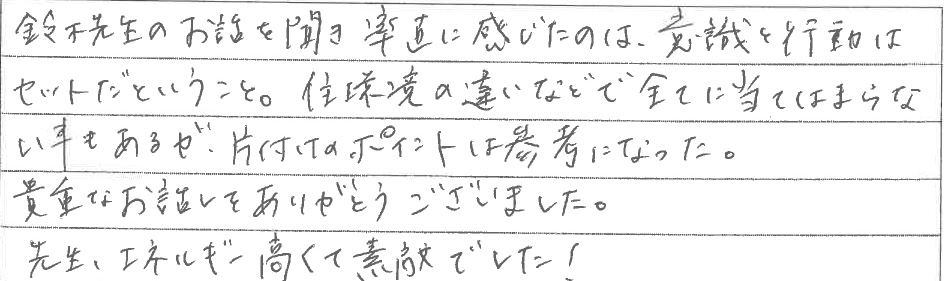 鈴木先生のお話を聞き率直に感じたのは、意識と行動は
セットだということ。住環境の違いなどで全てに当てはまらな
い事もあるが、片付けのポイントは参考になった。
貴重なお話しをありがとうございました。
先生、エネルギー高くて素敵でした!